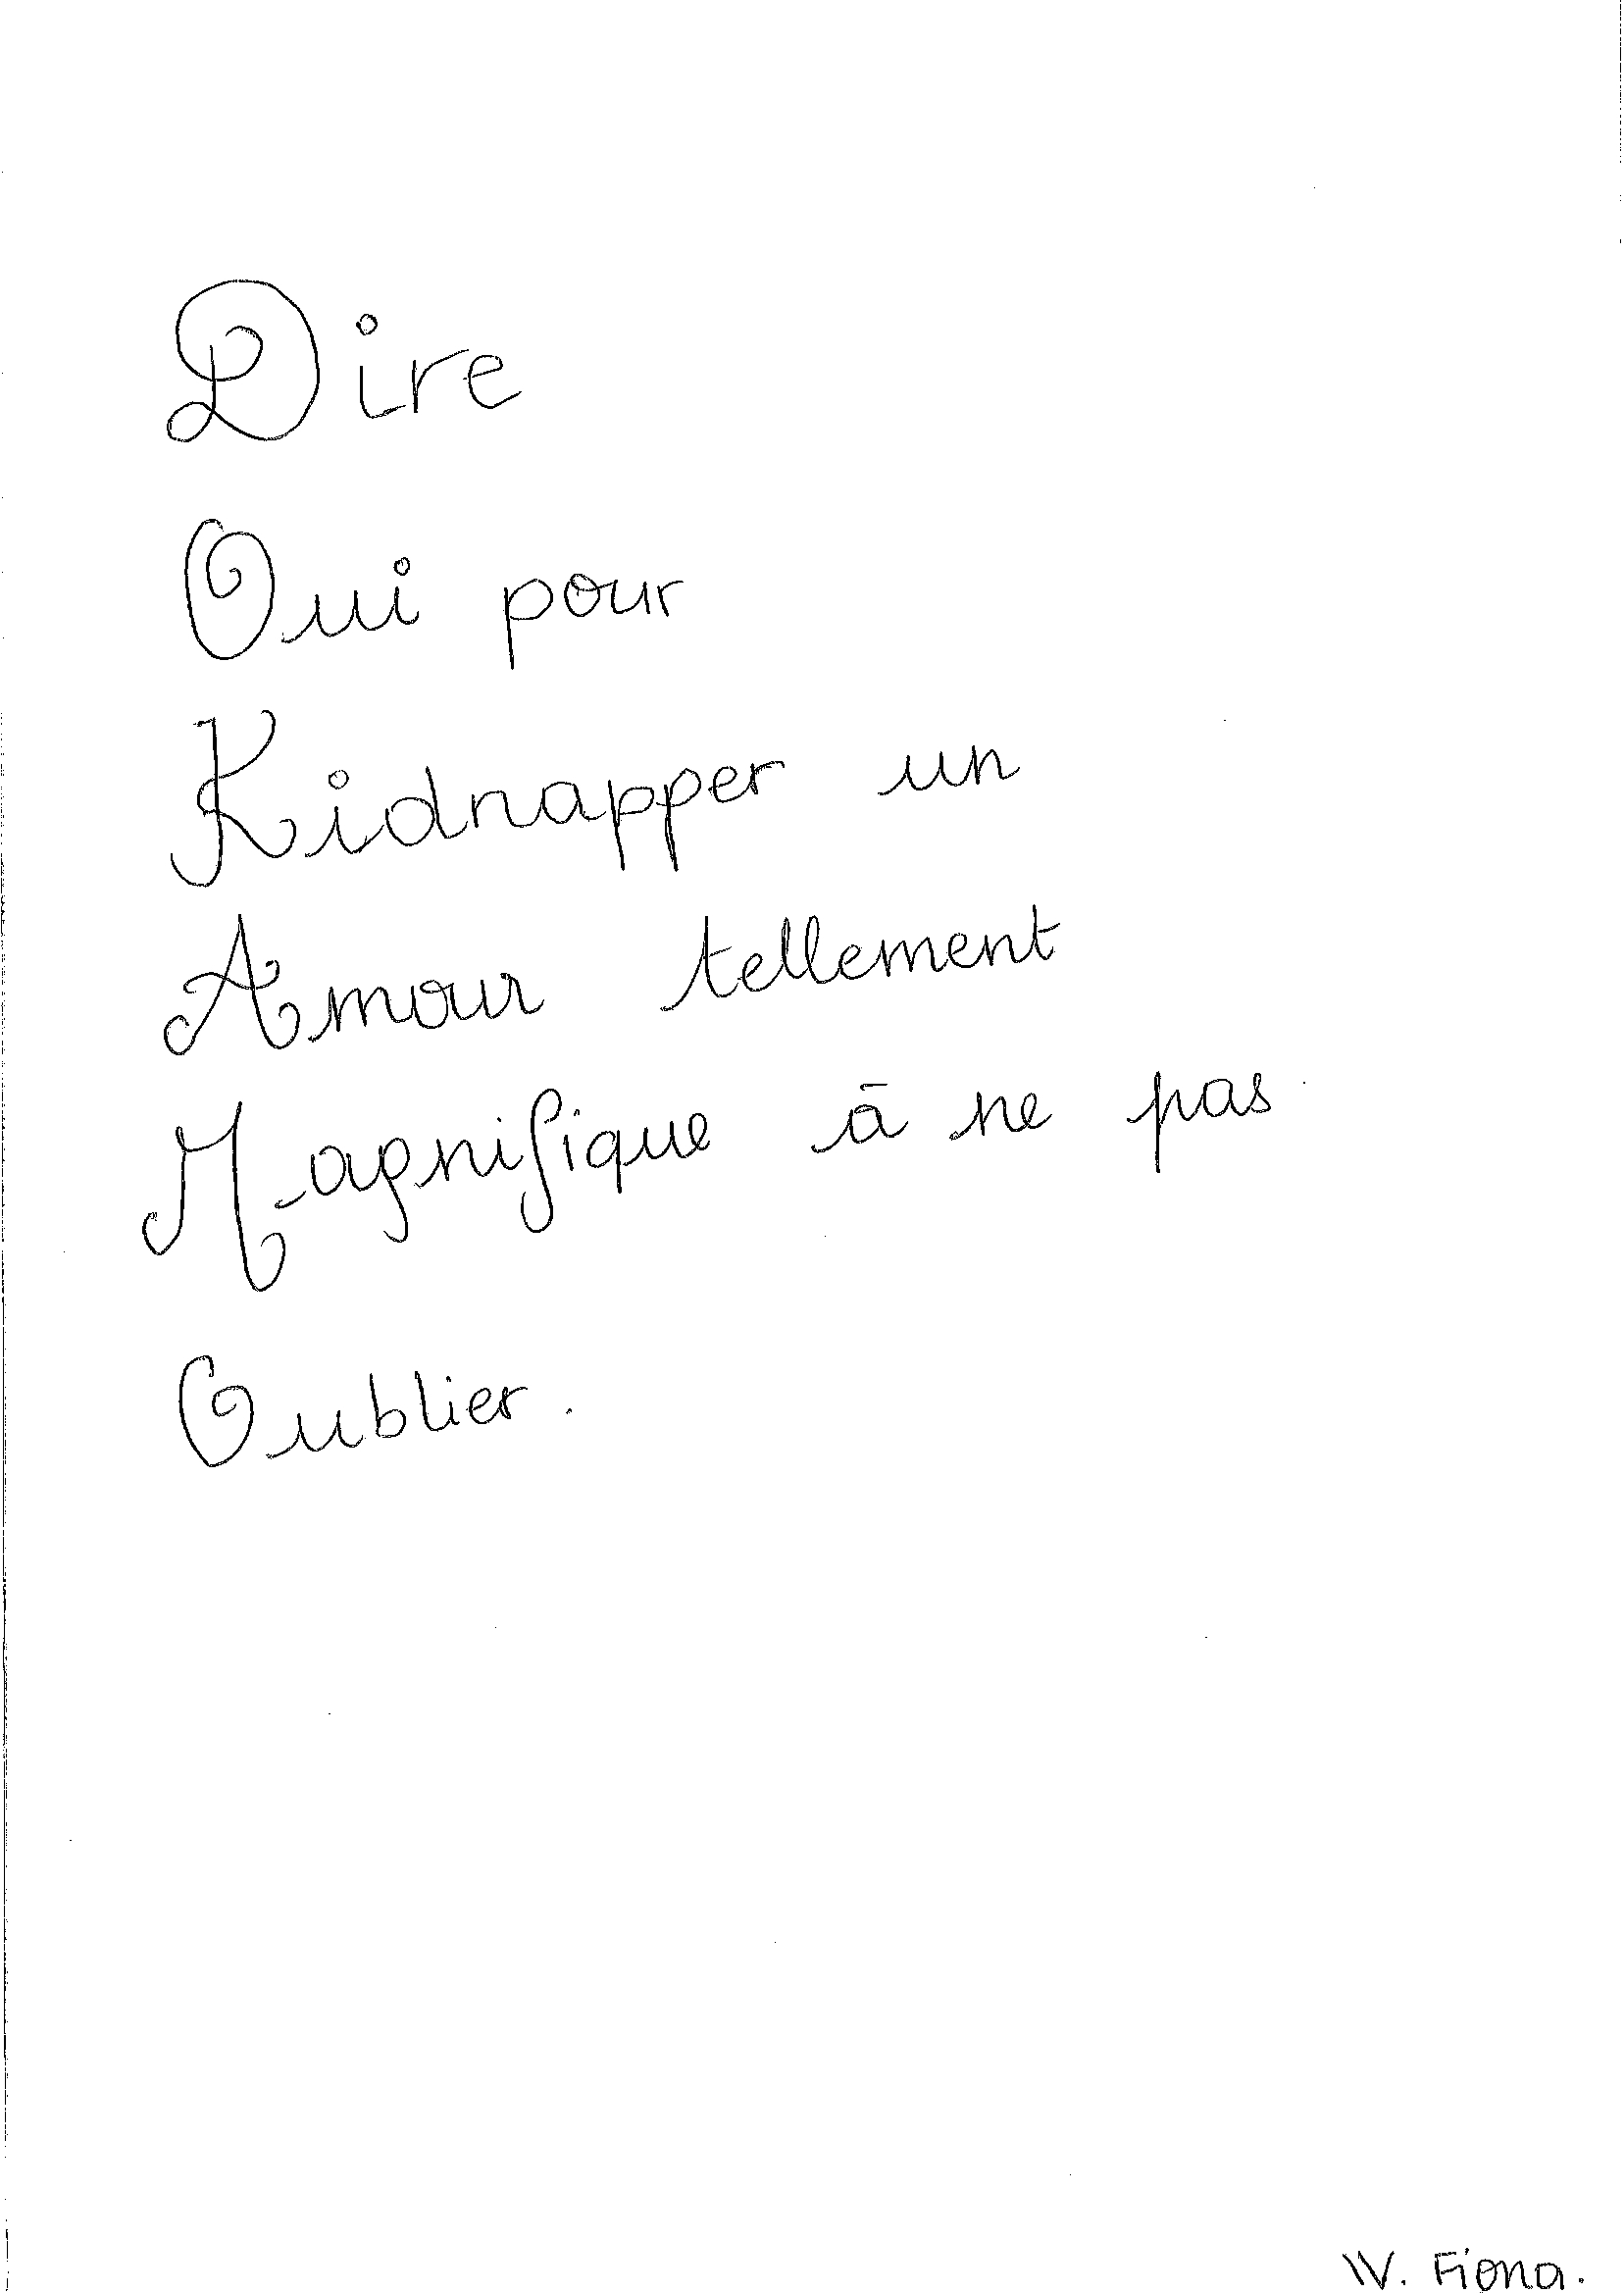 Dire
Oui pour
Kidnapper un
Amour tellement
Magnifique à ne pas
Oublier.
W. Fiona.